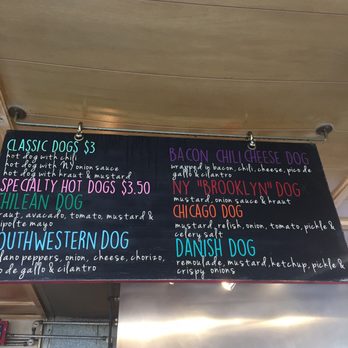 CLASSIC DOGS $3
hot dog with chili
hot dog with NY onion sauce
hot dog with kraut & mustard
SPECIALTY HOT DOGS $3.50
CHILEAN DOG
kraut, avocado, tomato, mustard &
chipolte mayo
SOUTHWESTERN DOG
peppers, onion, cheese, chorizo,
de gallo & cilantro
BACON CHILI CHEESE DOG
wrapped in bacon, chili, cheese, pico de
gallo & cilantro
NY "BROOKLYN" DOG
mustard, onion sauce & kraut
CHICAGO DOG
mustard, relish, onion, tomato, pickle &
celery salt
DANISH DOG
remoulade, mustard, ketchup, pickle &
crispy onions